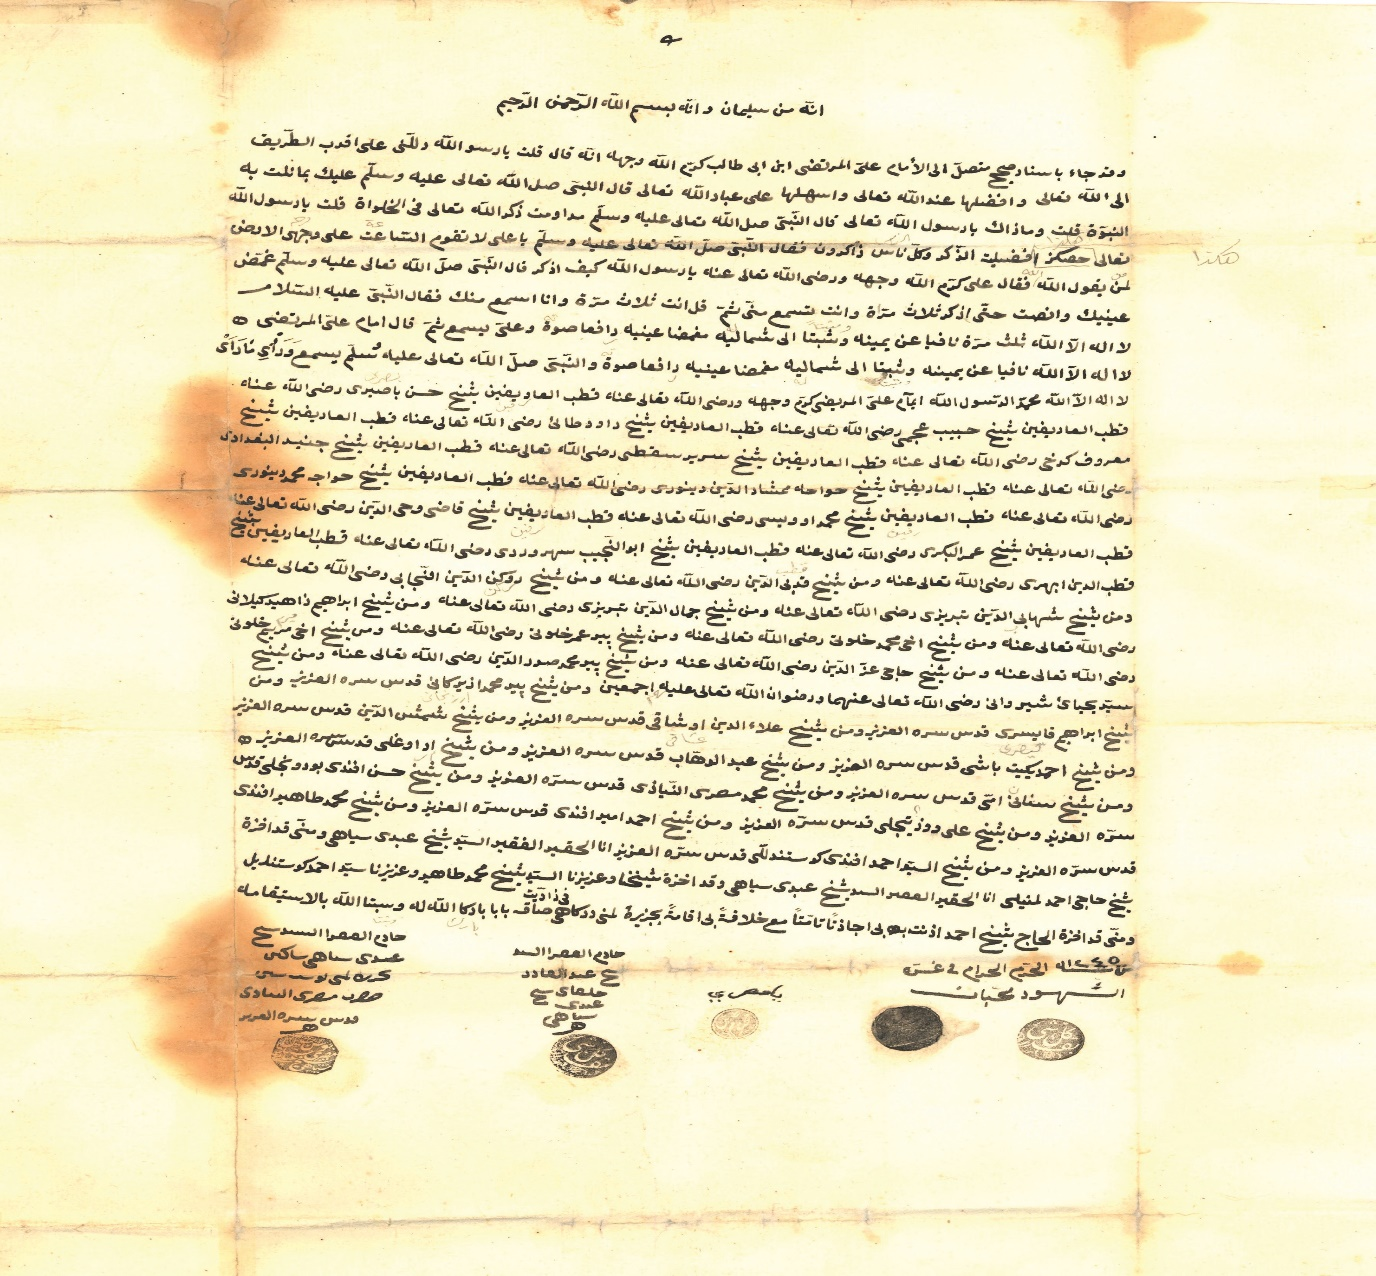 انّه من سليمان وانّه بسم اللّه الرّحمن الرّحيم
وقد جاء باسناد صحيح متصل الى الأمام على المرتضى ابن ابى طالب كرّم اللّه وجهه انّه قال قلت يا رسو اللّه دللنى على اقرب الطّريف
الى اللّه تعالى وافضلها عند اللّه تعالى واسهلها على عباد اللّه تعالى قال النبىّ صل اللّه تعالى عليه وسلّم عليك بما نلت به
النبوّة قلت وما ذاك يا رسول اللّه تعالى قال النّبىّ صل اللّه تعالى عليه وسلّم مداومت ذكر اللّه تعالى فى الخلواة قلت يا رسول اللّه
تعالى افضليت الذّكر وكلّ ناس ذاكرون فقال النّبىّ صلّ اللّه تعالى عليه وسلّم يا على لا تقوم السّاعت على وجهى الارض
هكذا
لمن يقول اللّه فقال على كرّم اللّه وجهه ورضى اللّه تعالى عنه يا رسول اللّه كيف اذكر قال النّبى صلّ اللّه تعالى عليه وسلّم غمّض
عينيك وانصت حتّى اذكر ثلاث مرّة وانت تسمع منّى ثمّ قل انت ثلاث مرّة وانا اسمع منك فقال النّبىّ عليه السّلام
لا اله الّا اللّه ثلث مرّة نافيا عن يمينه ومثبتا الى شماليه مغمضا عينيه رافعا صوة وعلىّ يسمع ثمّ قال امام علىّ المرتضى
لا اله الّا اللّه نافيا عن يمينه ومثبتا الى شماليه مغمضا عينيه رافعا صوة والنّبىّ صلّ اللّه تعالى عليه سلّم يسمع
لا اله الّا اللّه محمّد الرّسول اللّه امام علىّ المرتضى كرّم وجهه ورضى اللّه تعالى عنه قطب العاريفين شيخ حسن باصيرى رضى اللّه عنه
قطب العاريفين شيخ حبيب عجمى رضى اللّه تعالى عنه قطب العاريفين شيخ داود طائ رضى اللّه تعالى عنه قطب العاريفين شيخ
معروف كرخى رضى اللّه تعالى عنه قطب العاريفين شيخ سرير سقطى رضى اللّه تعالى عنه قطب العاريفين شيخ جنيد البغدادى
رضى اللّه تعالى عنه قطب العاريفين شيخ حواجه ممشاد الدّين دينورى رضى اللّه تعالى عنه قطب العاريفين شيخ حواجه محمد دينورى
رضى اللّه تعالى عنه قطب العاريفين شيخ محمد رضى اللّه تعالى عنه قطب العاريفين شيخ قاضى وحى الدّين رضى اللّه تعالى عنه
قطب العاريفين شيخ عمر البكرى رضى اللّه تعالى عنه قطب العاريفين شيخ ابو النّجيب سهروردى رضى اللّه تعالى عنه قطب العاريفين شيخ
قطب الدين ابهرى رضى اللّه تعالى عنه ومن شيخ الدّين رضى اللّه تعالى عنه ومن شيخ روكن الدّين النّجابى رضى اللّه تعالى عنه
ومن شيخ شهابى الدّين تبريزى رضى اللّه تعالى عنه ومن شيخ جمال الدّين تبريزى رضى اللّه تعالى عنه ومن شيخ ابراهيم ذاهيد كيلانى
رضى اللّه تعالى عنه ومن شيخ اخى محمد خلوتى رضى اللّه تعالى عنه ومن شيخ پير عمر خلوتى رضى اللّه تعالى عنه ومن شيخ اخى خلوتى
رضى اللّه تعالى عنه ومن شيخ حاجى عزّ الدّين رضى اللّه تعالى عنه ومن شيخ پير محمد صدور الدّين رضى اللّه تعالى عنه ومن شيخ
سيّد يحيائ شيروانى رضى اللّه تعالى عنهما ورضوان اللّه تعالى عليه اجمعين ومن شيخ پير محمد قدس سره العزيز ومن
شيخ ابراهيم قايسرى قدس سره العزيز ومن شيخ علاء الدين اوشاقى قدس سره العزيز ومن شيخ شمشّ الدّين قدس سره العزيز
ومن شيخ احمد باشى قدس سره العزيز ومن شيخ عبد الوهّاب قدس سره العزيز ومن شيخ قدس سره العزيز
ومن شيخ سنانئ امّى قدس سره العزيز ومن شيخ محمد مصرى النّيازى قدس سرّه العزيز ومن شيخ حسن افندى قدس
سرّه العزيز ومن شيخ على قدس سرّه العزيز ومن شيخ احمد امير افندى قدس سرّه العزيز ومن شيخ محمد طاهير افندى
قدس سرّه العزيز ومن شيخ السيّد احمد افندى كوستنديللى قدس سرّه العزيز انا الحقير الفقير السيّد شيخ عبدى سياهى ومنّى قد اخزة
شيخ حاجى احمد انا الحقير الفقير السيد شيخ عبدى سياهى وقد اخزة شيخنا وعزيزنا السيّد شيخ محمد طاهير وعزيزنا سيّد احمد كوستنديل
ومنّى قد اخزة الحاج شيخ احمد اذنت به بى اجاذنًا تامّتًا مع خلافة بى اقامة بجزيرة بابا باركا اللّه له وسبتا اللّه بالاستيقامه
سنه ١٢٤٥ الحرّم الحرام فى
الشهود محبان
يا مصرى
خادم الفقرا السيد
شيخ عبد القادر
خلفاى شيخ
عبدى
سياهى
خادم الفقرا السيد شيخ
عبدى سياهى ساكن
حضرت مصرى النيازى
قدس سره العزيز